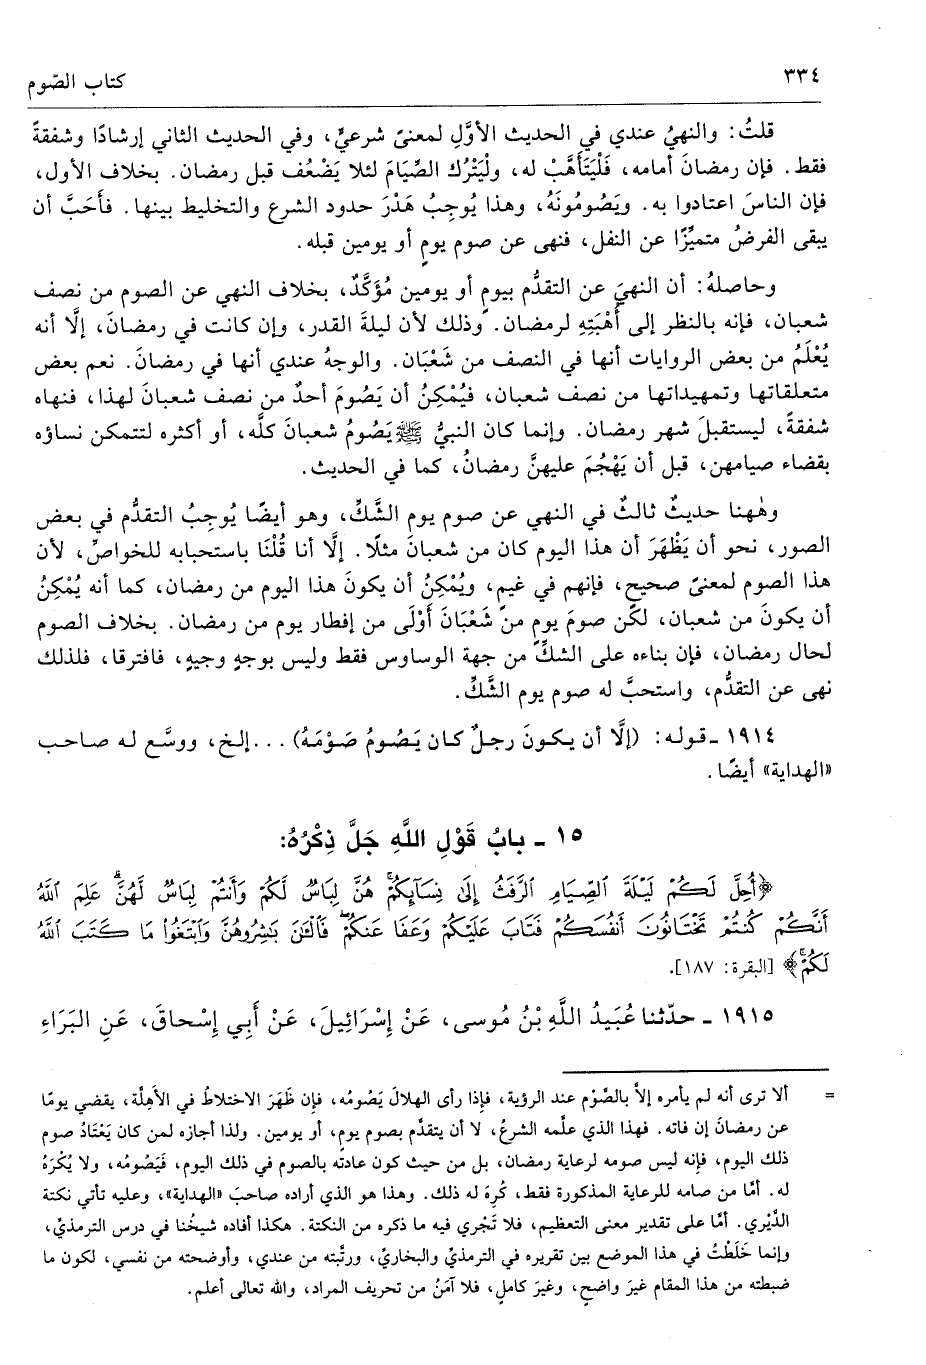 ٣٣٤
كتاب الصّوم
قلتُ: والنهيُ عندي في الحديث الأوَّلِ لمعنىً شرعيٍّ، وفي الحديث الثاني إرشادًا وشفقةً
فقط. فإن رمضانَ أمامه، فَلْيَتَأَهَّبْ له، ولْيَتْرُك الصِّيَامَ لئلا يَضْعُف قبل رمضان. بخلاف الأول،
فإن الناسَ اعتادوا به. ويَصُومُونَهُ، وهذا يُوجِبُ هَدْرَ حدود الشرع والتخليط بينها. فأَحَبَّ أن
يبقى الفرضُ متميِّزًا عن النفل، فنهى عن صوم يومٍ أو يومين قبله.
وحاصلهُ: أن النهيَ عن التقدُّم بيومٍ أو يومين مُؤَكَّدٌ، بخلاف النهي عن الصوم من نصف
شعبان، فإنه بالنظر إلى أُهْبَتِهِ لرمضان. وذلك لأن ليلةَ القدر، وإن كانت في رمضانَ، إلَّا أنه
يُعْلَمُ من بعض الروايات أنها في النصف من شَعْبَان. والوجهُ عندي أنها في رمضانَ. نعم بعض
متعلقاتها وتمهيداتها من نصف شعبان، فيُمْكِنُ أن يَصُومَ أحدٌ من نصف شعبانَ لهذا، فنهاه
شفقةً، ليستقبلَ شهر رمضان. وإنما كان النبيُّ ﷺ يَصُومُ شعبانَ كلَّه، أو أكثره لتتمكن نساؤه
بقضاء صيامهن، قبل أن يَهْجُمَ عليهنَّ رمضانُ، كما في الحديث.
وهٰهنا حديثٌ ثالثٌ في النهي عن صوم يوم الشَّكِّ، وهو أيضًا يُوجِبُ التقدُّم في بعض
الصور، نحو أن يَظْهَرَ أن هذا اليوم كان من شعبانَ مثلًا. إلَّا أنا قُلْنَا باستحبابه للخواصِّ، لأن
هذا الصوم لمعنىً صحيحٍ، فإنهم في غيم، ويُمْكِنُ أن يكونَ هذا اليوم من رمضان، كما أنه يُمْكِنُ
أن يكونَ من شعبان، لكن صومَ يومٍ من شَعْبَانَ أَوْلَى من إفطار يوم من رمضان. بخلاف الصوم
لحال رمضان، فإن بناءه على الشكِّ من جهة الوساوس فقط وليس بوجهٍ وجيهٍ، فافترقا، فلذلك
نهى عن التقدُّم، واستحبَّ له صوم يوم الشَّكِّ.
١٩١٤ ـ قوله: (إلَّا أن يكونَ رجلٌ كان يَصُومُ صَوْمَهُ) ... إلخ، ووسَّع له صاحب
«الهداية» أيضًا.
١٥ ـ بابُ قَوْلِ اللَّهِ جَلَّ ذِكْرُهُ:
﴿أُحِلَّ لَكُمْ لَيْلَةَ ٱلصِّيَامِ ٱلرَّفَثُ إِلَىٰ نِسَآئِكُمْۚ هُنَّ لِبَاسٌ لَّكُمْ وَأَنتُمْ لِبَاسٌ لَّهُنَّۗ عَلِمَ ٱللَّهُ
أَنَّكُمْ كُنتُمْ تَخْتَانُونَ أَنفُسَكُمْ فَتَابَ عَلَيْكُمْ وَعَفَا عَنكُمْۖ فَٱلْـَٰٔنَ بَٰشِرُوهُنَّ وَٱبْتَغُوا۟ مَا كَتَبَ ٱللَّهُ
لَكُمْۚ﴾ [البقرة: ١٨٧].
١٩١٥ ـ حدّثنا عُبَيدُ اللَّهِ بْنُ مُوسى، عَنْ إِسْرَائِيلَ، عَنْ أَبِي إِسْحاقَ، عَنِ البَرَاءِ
= ألا ترى أنه لم يأمره إلاَّ بالصَّوْم عند الرؤية، فإذا رأى الهلالَ يَصُومُه، فإن ظَهَرَ الاختلاطُ في الأهِلَّة، يقضي يومًا
عن رمضانَ إن فاته. فهذا الذي علَّمه الشرعُ، لا أن يتقدَّم بصوم يومٍ، أو يومين. ولذا أجازه لمن كان يَعْتَادُ صوم
ذلك اليوم، فإنه ليس صومه لرعاية رمضان، بل من حيث كون عادته بالصوم في ذلك اليوم، فَيَصُومُه، ولا يُكْرَهُ
له. أمَّا من صامه للرعاية المذكورة فقط، كُرِهَ له ذلك. وهذا هو الذي أراده صاحبَ «الهداية»، وعليه تأتي نكتة
الدِّيْري. أمَّا على تقدير معنى التعظيم، فلا تَجْري فيه ما ذكره من النكتة. هكذا أفاده شيخُنا في درس الترمذيِّ،
وإنما خَلَطْتُ في هذا الموضع بين تقريره في الترمذيِّ والبخاريِّ، ورتَّبته من عندي، وأوضحته من نفسي، لكون ما
ضبطته من هذا المقام غيرَ واضحٍ، وغيرَ كاملٍ، فلا آمَنُ من تحريف المراد، والله تعالى أعلم.